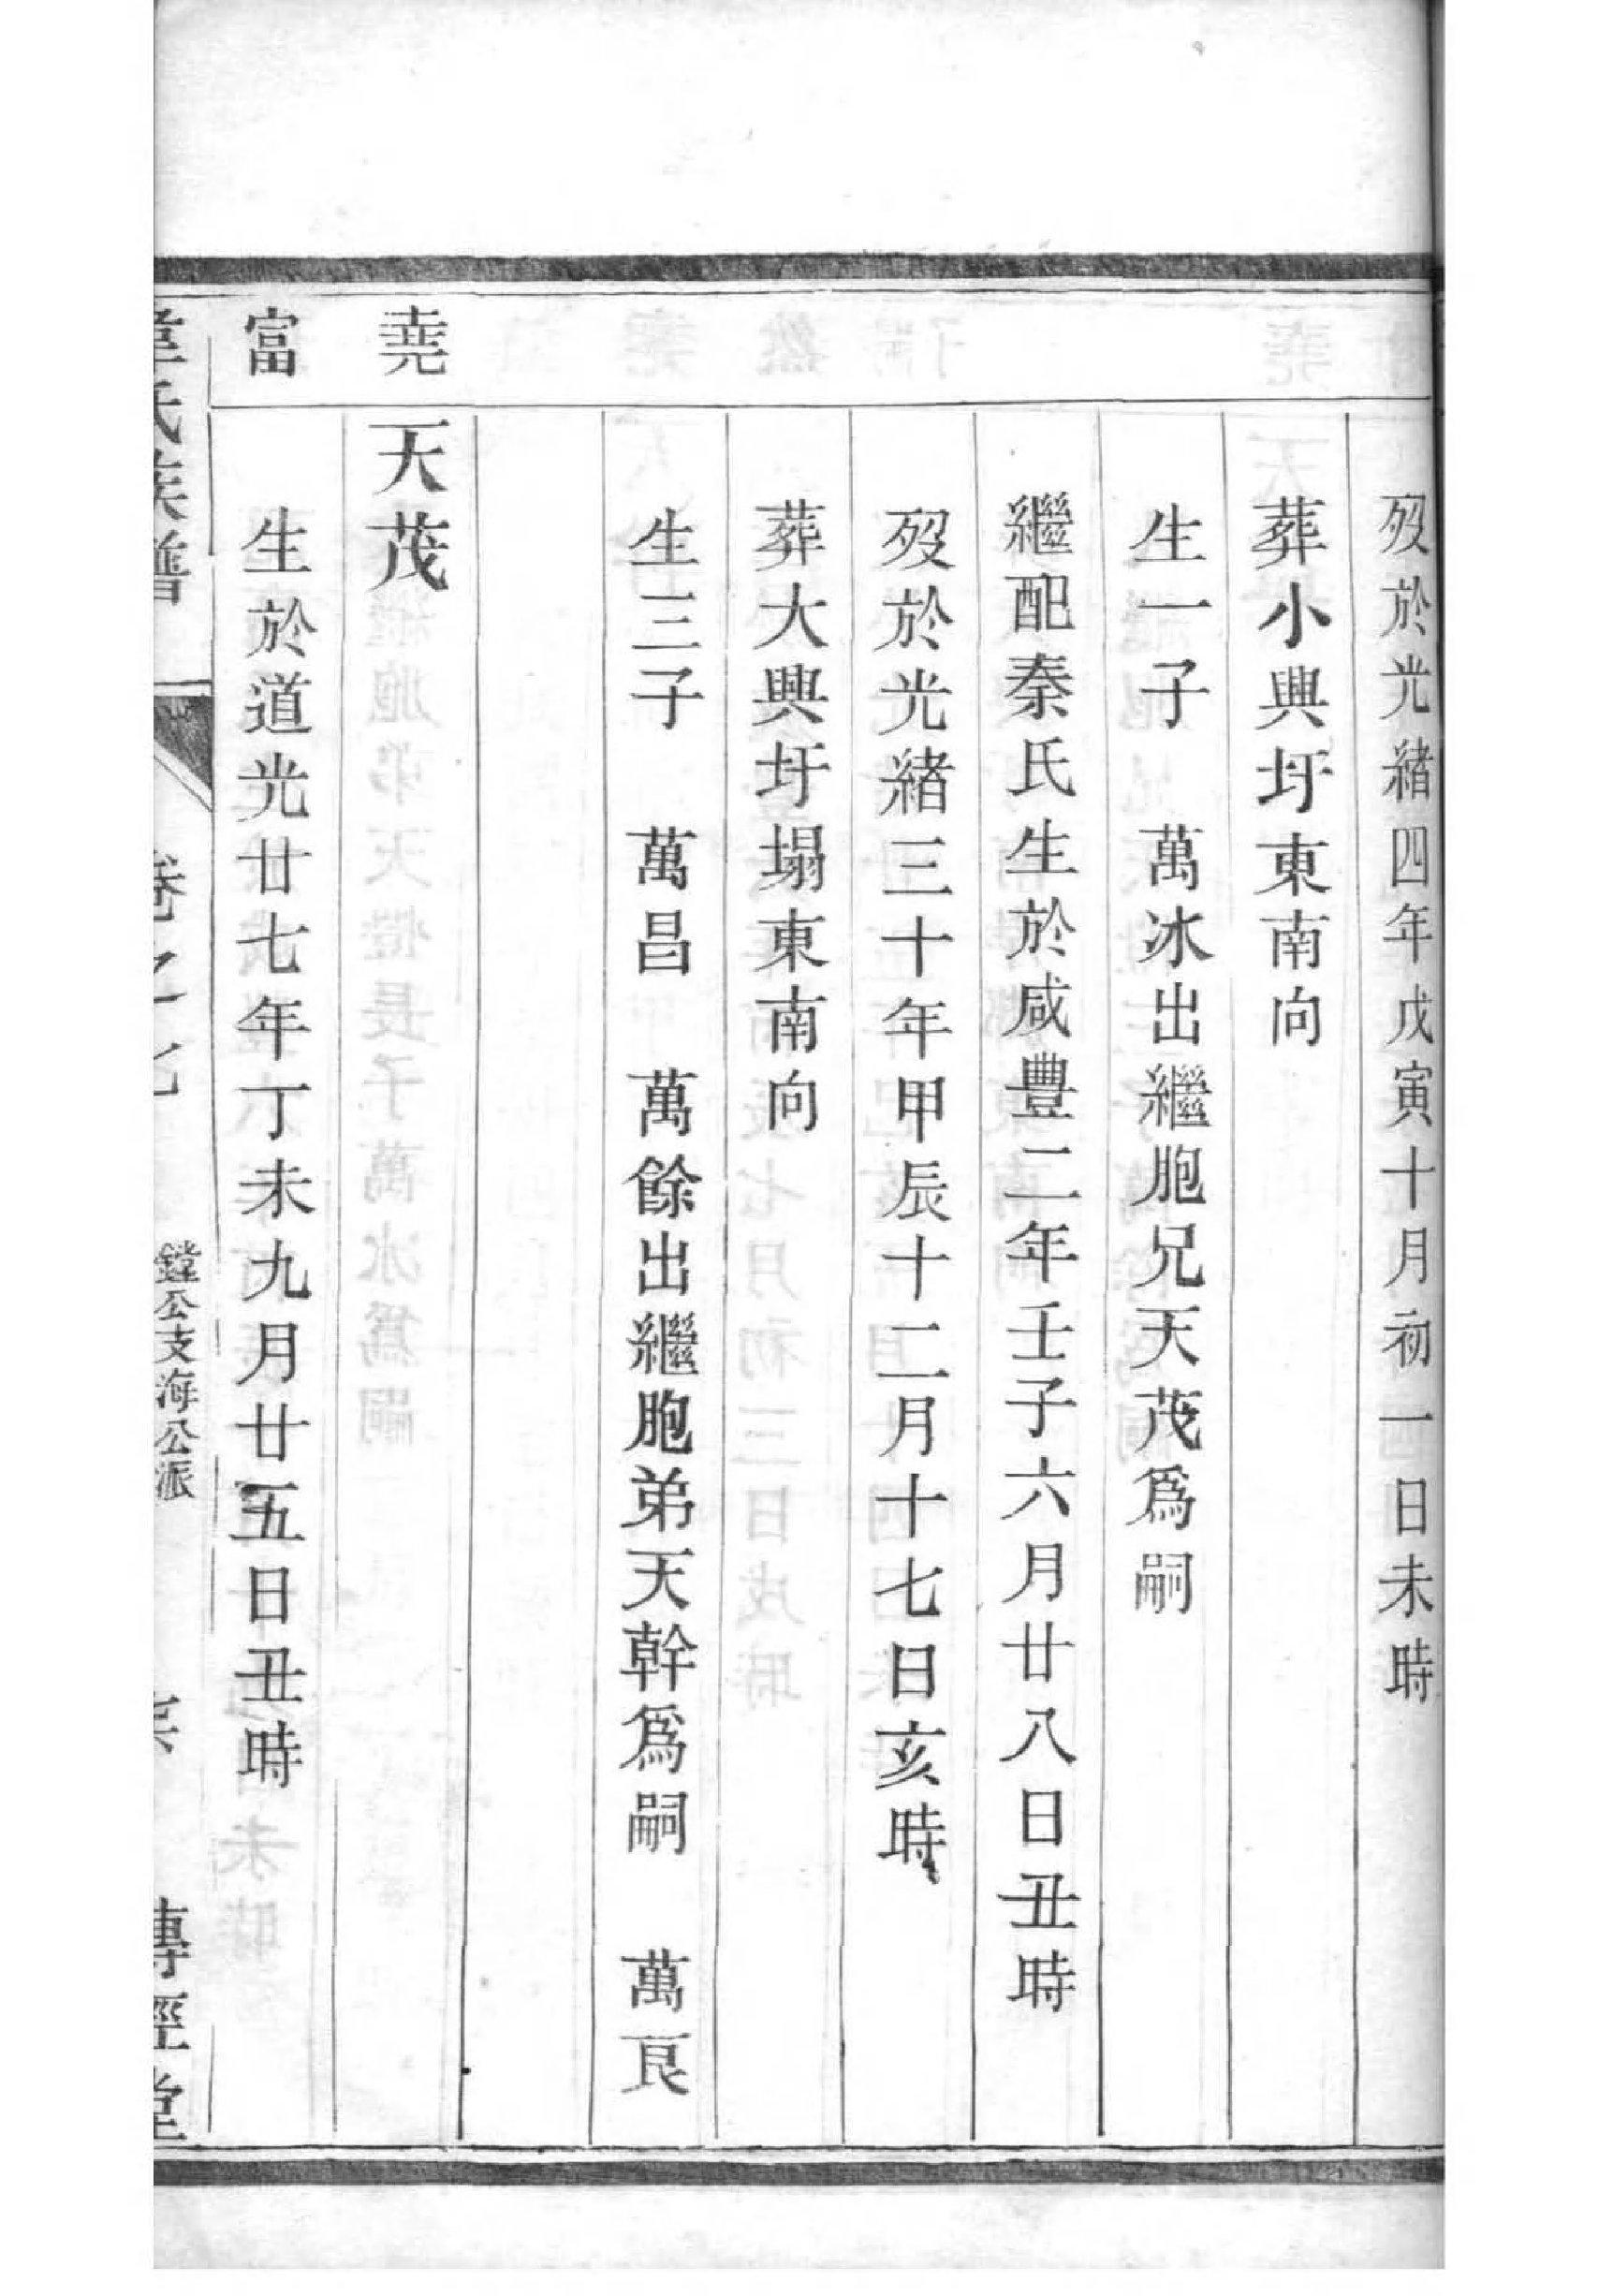 歿於光緒四年戊寅十月初一日未時
葬小興圩東南向
生一子　萬冰出繼胞兄天茂爲嗣
繼配秦氏生於咸豐二年壬子六月廿八日丑時
歿於光緒三十年甲辰十二月十七日亥時
葬大興圩塌東南向
生三子　萬昌　萬餘出繼胞弟天幹爲嗣　萬艮
堯
天茂
富
生於道光廿七年丁未九月廿五日丑時
氏族譜
卷之七
鏜公支海公派
傳經堂